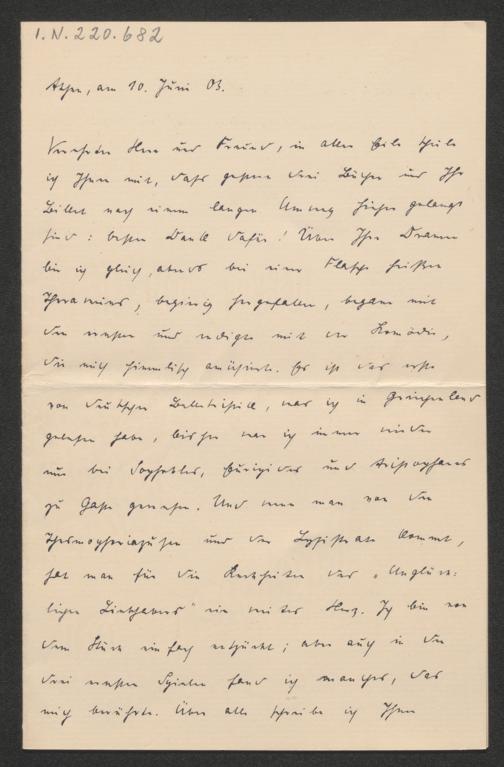 I.N. 220.682
Athen, am 10. Juni 03.
Verehrter Herr und Freund, in aller Eile theile
ich Ihnen mit, dass gestern drei Bücher und Ihr
Billet nach einem langen Umweg hieher gelangt
sind: besten Dank dafür! Über Ihre Dramen
bin ich gleich, abends bei einer Flasche
, begierig hergefallen, begann mit
den ersten und endigte mit der Komödie,
die mich himmlisch amüsirte. Es ist das erste
von deutscher Belletristik, was ich in Griechenland
gelesen habe, bisher war ich immer wieder
nur bei Sophokles, Euripides und Aristophanes
zu Gaste gewesen. Und wenn man von den
Thesmophoriazusen und der Lysistrate kommt,
hat man für die Keckheiten des „Unglück-
lichen Liebhabers" ein weites Herz. Ich bin von
dem Stück einfach entzückt; aber auch in den
drei ersten Spielen fand ich manches, das
mich berührte. Über alle schreibe ich Ihnen